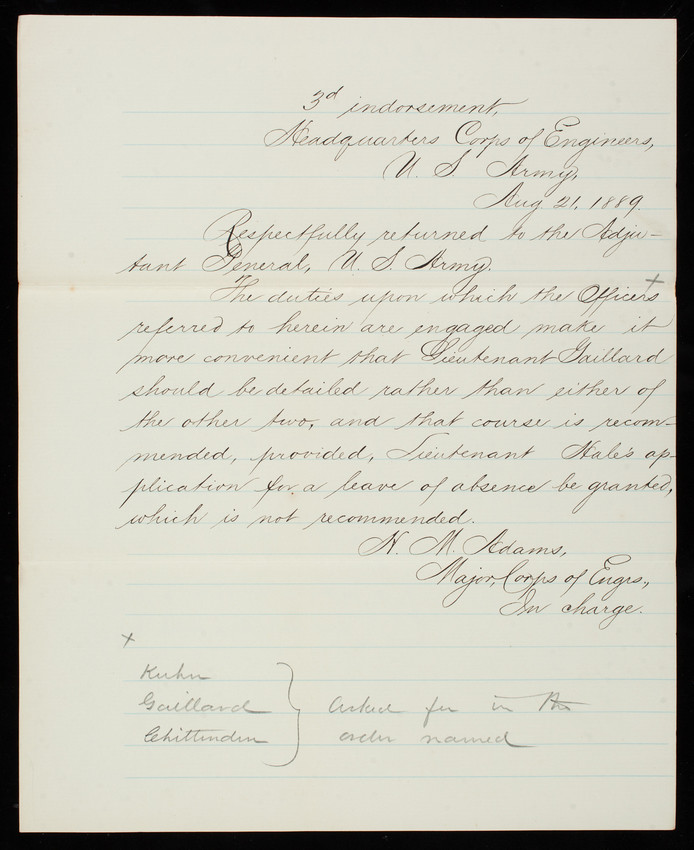 3d indorsement,
Headquarters Corps of Engineers,
U. S. Army,
Aug 21, 1889.
Respectfully returned to the Adju-
tant General, U. S. Army.
The duties upon which the Officers +
referred to herein are engaged make it
more convenient that Lieutenant Gaillard
should be detailed rather than either of
the other two, and that course is recom-
mended, provided, Lieutenant Hale's ap-
plication for a leave of absence be granted,
which is not recommended.
H. M. Adams,
Major, Corps of Engrs.,
In charge.
+
Kuhn
Gaillard } Asked for in the
Chittenden order named